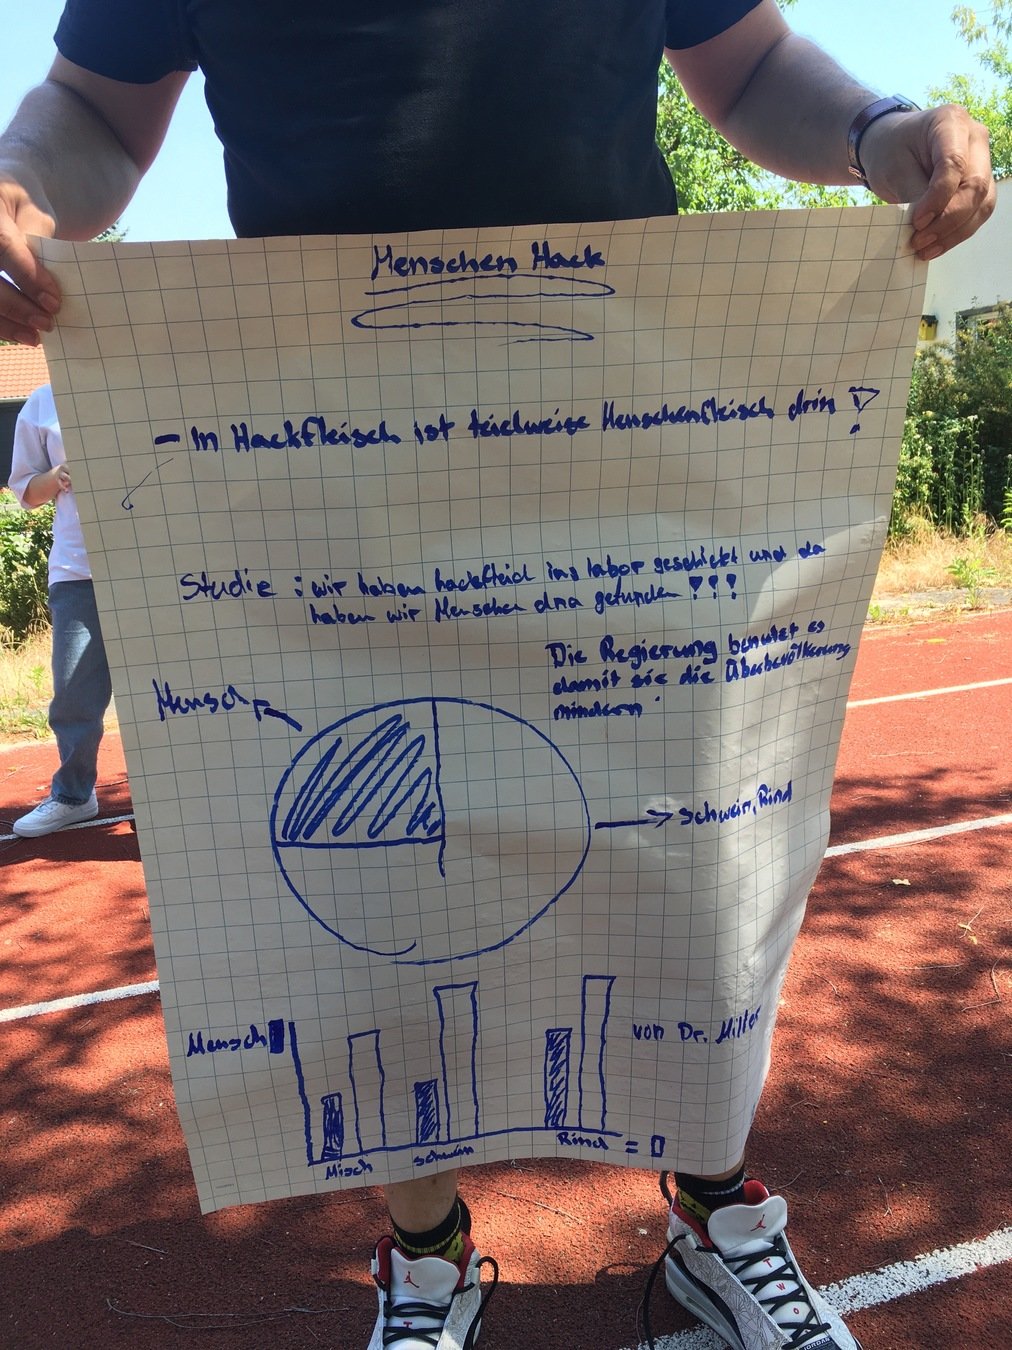 Menschen Hack
- In Hackfleisch ist teielweise Menschenfleisch drin !
Studie : wir haben hackfleid ins labor geschickt und da
haben wir Menschen dna gefunden !!!
Die Regierung benutzt es
damit sie die Überbevölkerung
mindern
Mensch
Schwein, Rind
Mensch
von Dr. Miller
Misch
Schwein
Rind = 0